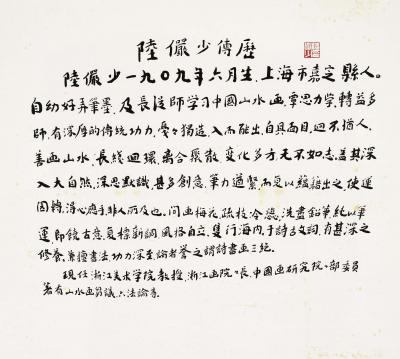 陸儼少傳歷
陸儼少一九〇九年六月生，上海市嘉定縣人。
自幼好弄筆墨，及長從師学习中國山水画，覃思力学，轉益多
師，有深厚的傳統功力，戞々獨造，入而能出，自具面目，迥不猶人，
善画山水，長綫迴環，离合聚散，变化多方，无不如志，盖其深
入大自然，深思默識，甚多創意，筆力遒緊而更以蘊藉出之，使運
圆轉，得心應手，非人所及也。间画梅花，疏枝冷蕊，洗盡鉛華，純以筆
運，即饒古意，夐標新調，風格自立，隻行海内，于詩古文詞，有甚深之
修養，兼擅書法，功力深至，論者譽之謂詩書画三絶。
現任浙江美术学院教授，浙江画院院長，中國画研究院院部委員
著有山水画芻議，六法論等。